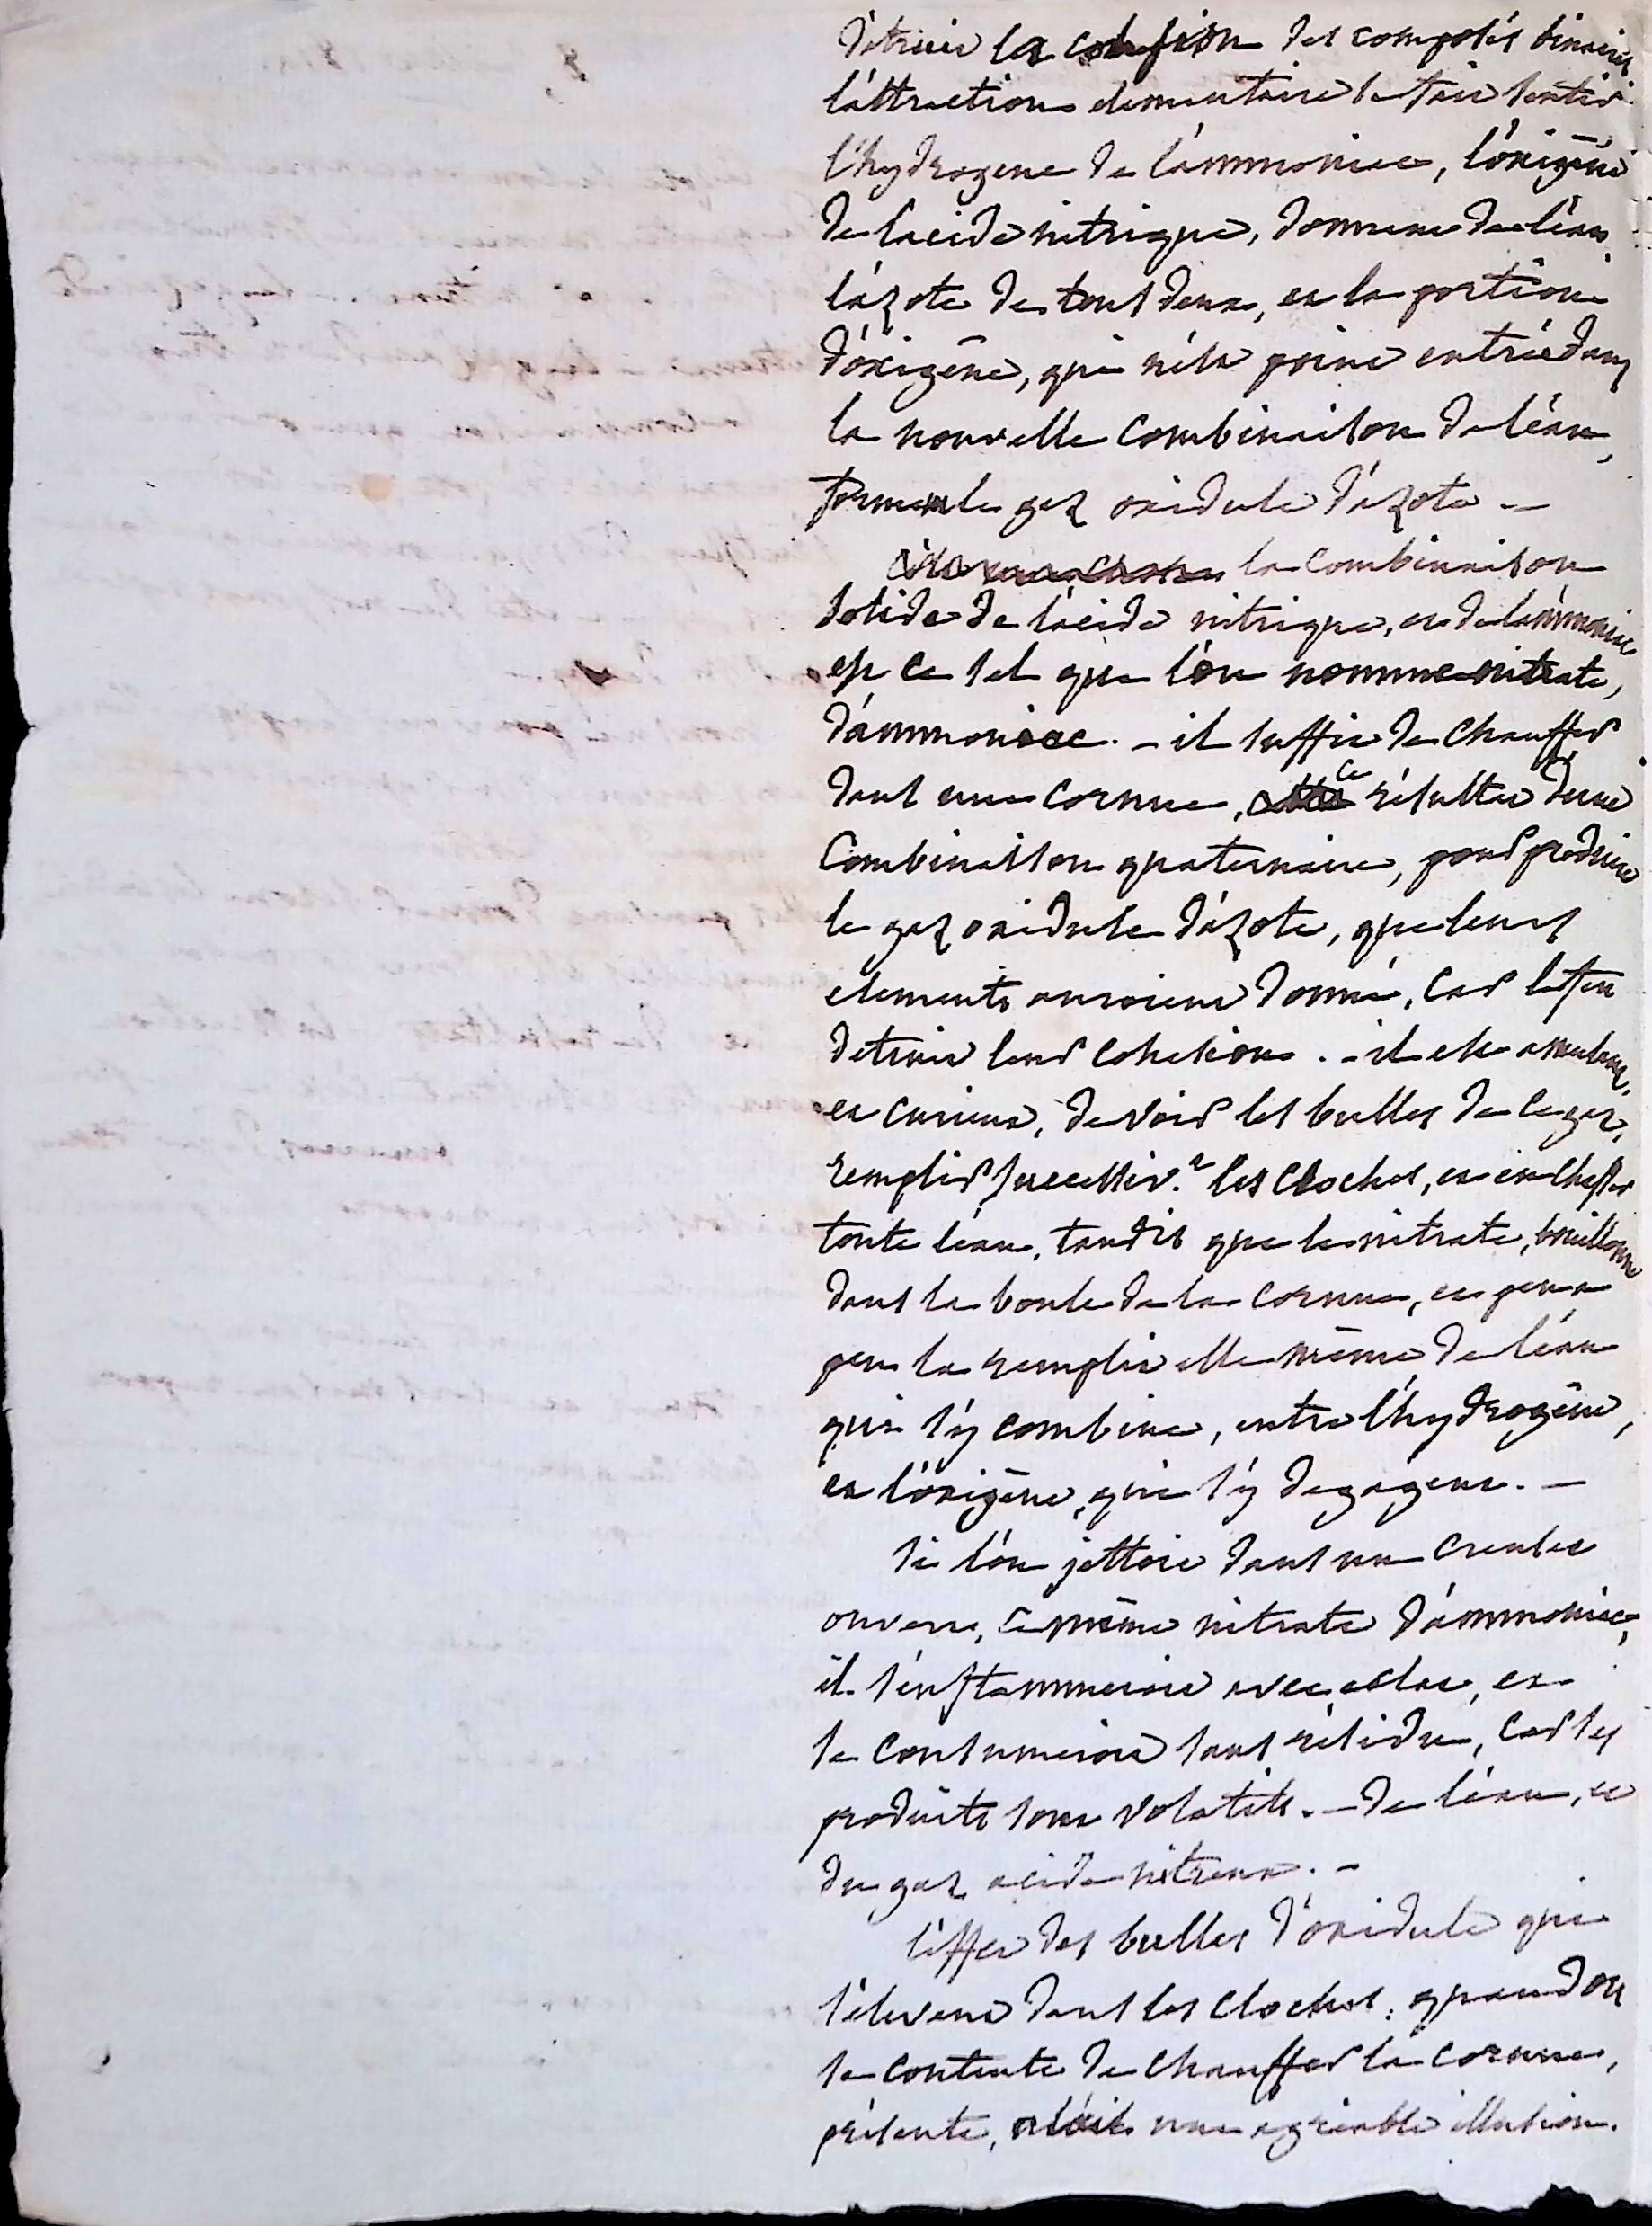 détruit la cohesion des composés binaires
l'attraction elementaire se fait sentir.
l'hydrogene de l'ammoniac, l'oxigène
de l'acide nitrique, donnent de l'eau
l'azote de tous deux, et la portion
d'oxigène, qui n'est point entrée dans
la nouvelle combinaison de l'eau,
forment le gaz oxidule d'azote —
la combinaison
solide de l'acide nitrique, et de l'ammoniac
est ce sel que l'on nomme nitrate,
d'ammoniac. — il suffit de chauffer
dans une cornue, ce résultat d'une
Combinaison quaternaire, pour produire
le gaz oxidule d'azote, que leurs
elements auroient donné, car le feu
detruit leur cohesion. — il est amusant,
et curieux, de voir les bulles de ce gaz,
remplir successiv.t les cloches, et en chasser
toute l'eau, tandis que le nitrate, bouillonne
dans la boule de la cornue, et peu a
peu la remplit elle même, de l'eau
qui s'y combine, entre l'hydrogène,
et l'oxigène, qui s'y degagent. —
si l'on jettoit dans un creuset
ouvert, ce même nitrate d'ammoniac,
il s'enflammeroit avec eclat, et
se consumeroit sans résidu, car ses
produits sont volatils. — de l'eau, et
du gaz acide nitreux. —
l'effet des bulles d'oxidule qui
s'elevent dans les cloches: quand on
se contente de chauffer la cornue,
présente, une agréable illusion.